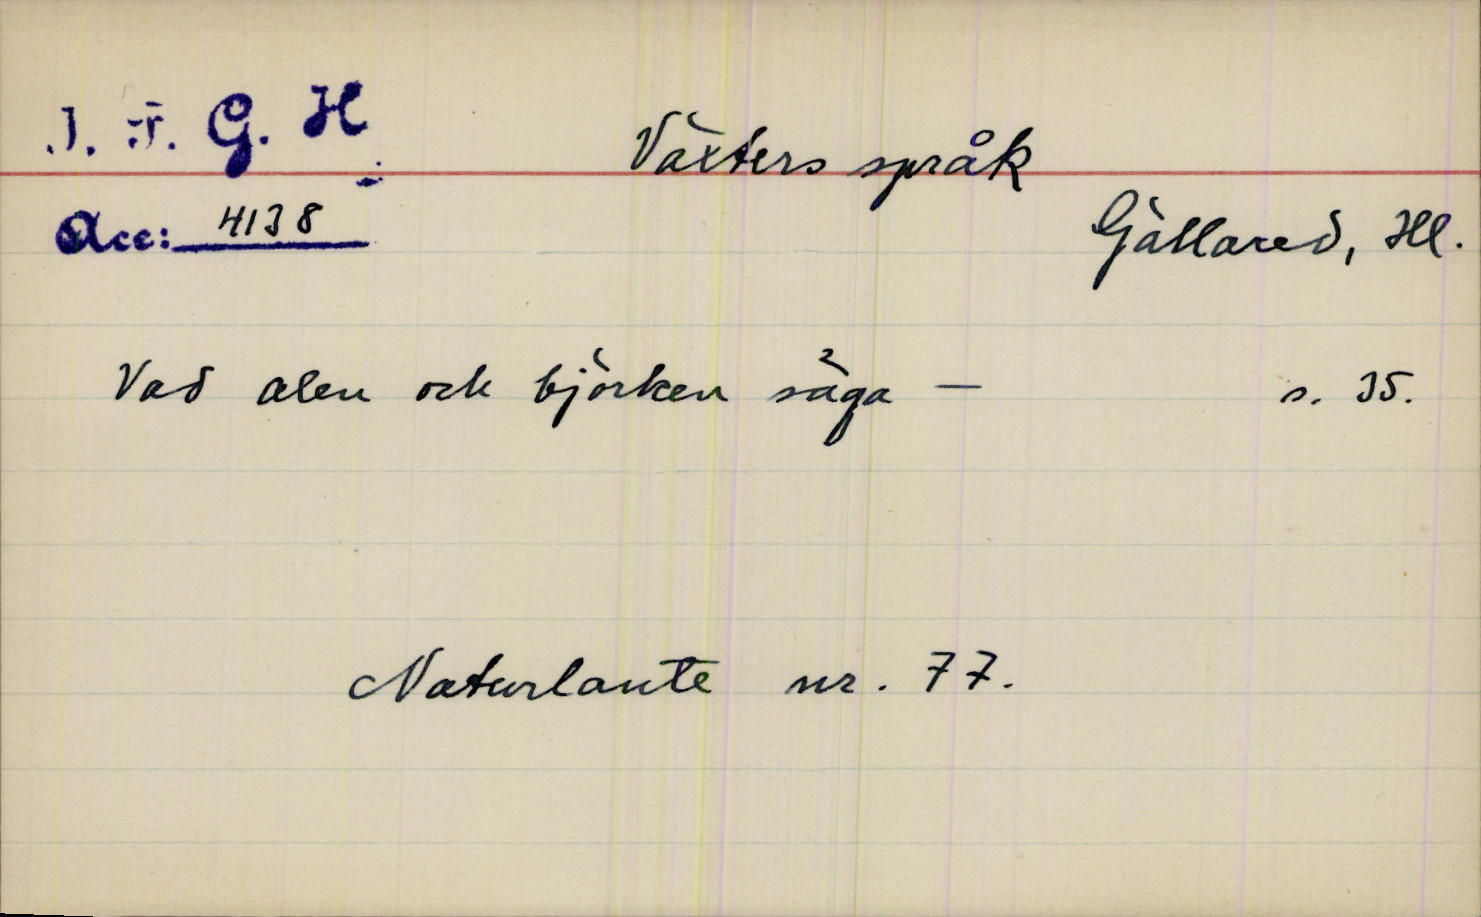 I. F. G. H
Växters språk
Acc: 4138
Gällared, Hl.
Vad alen och björken säga — s. 35.
Naturlaute nr. 77.